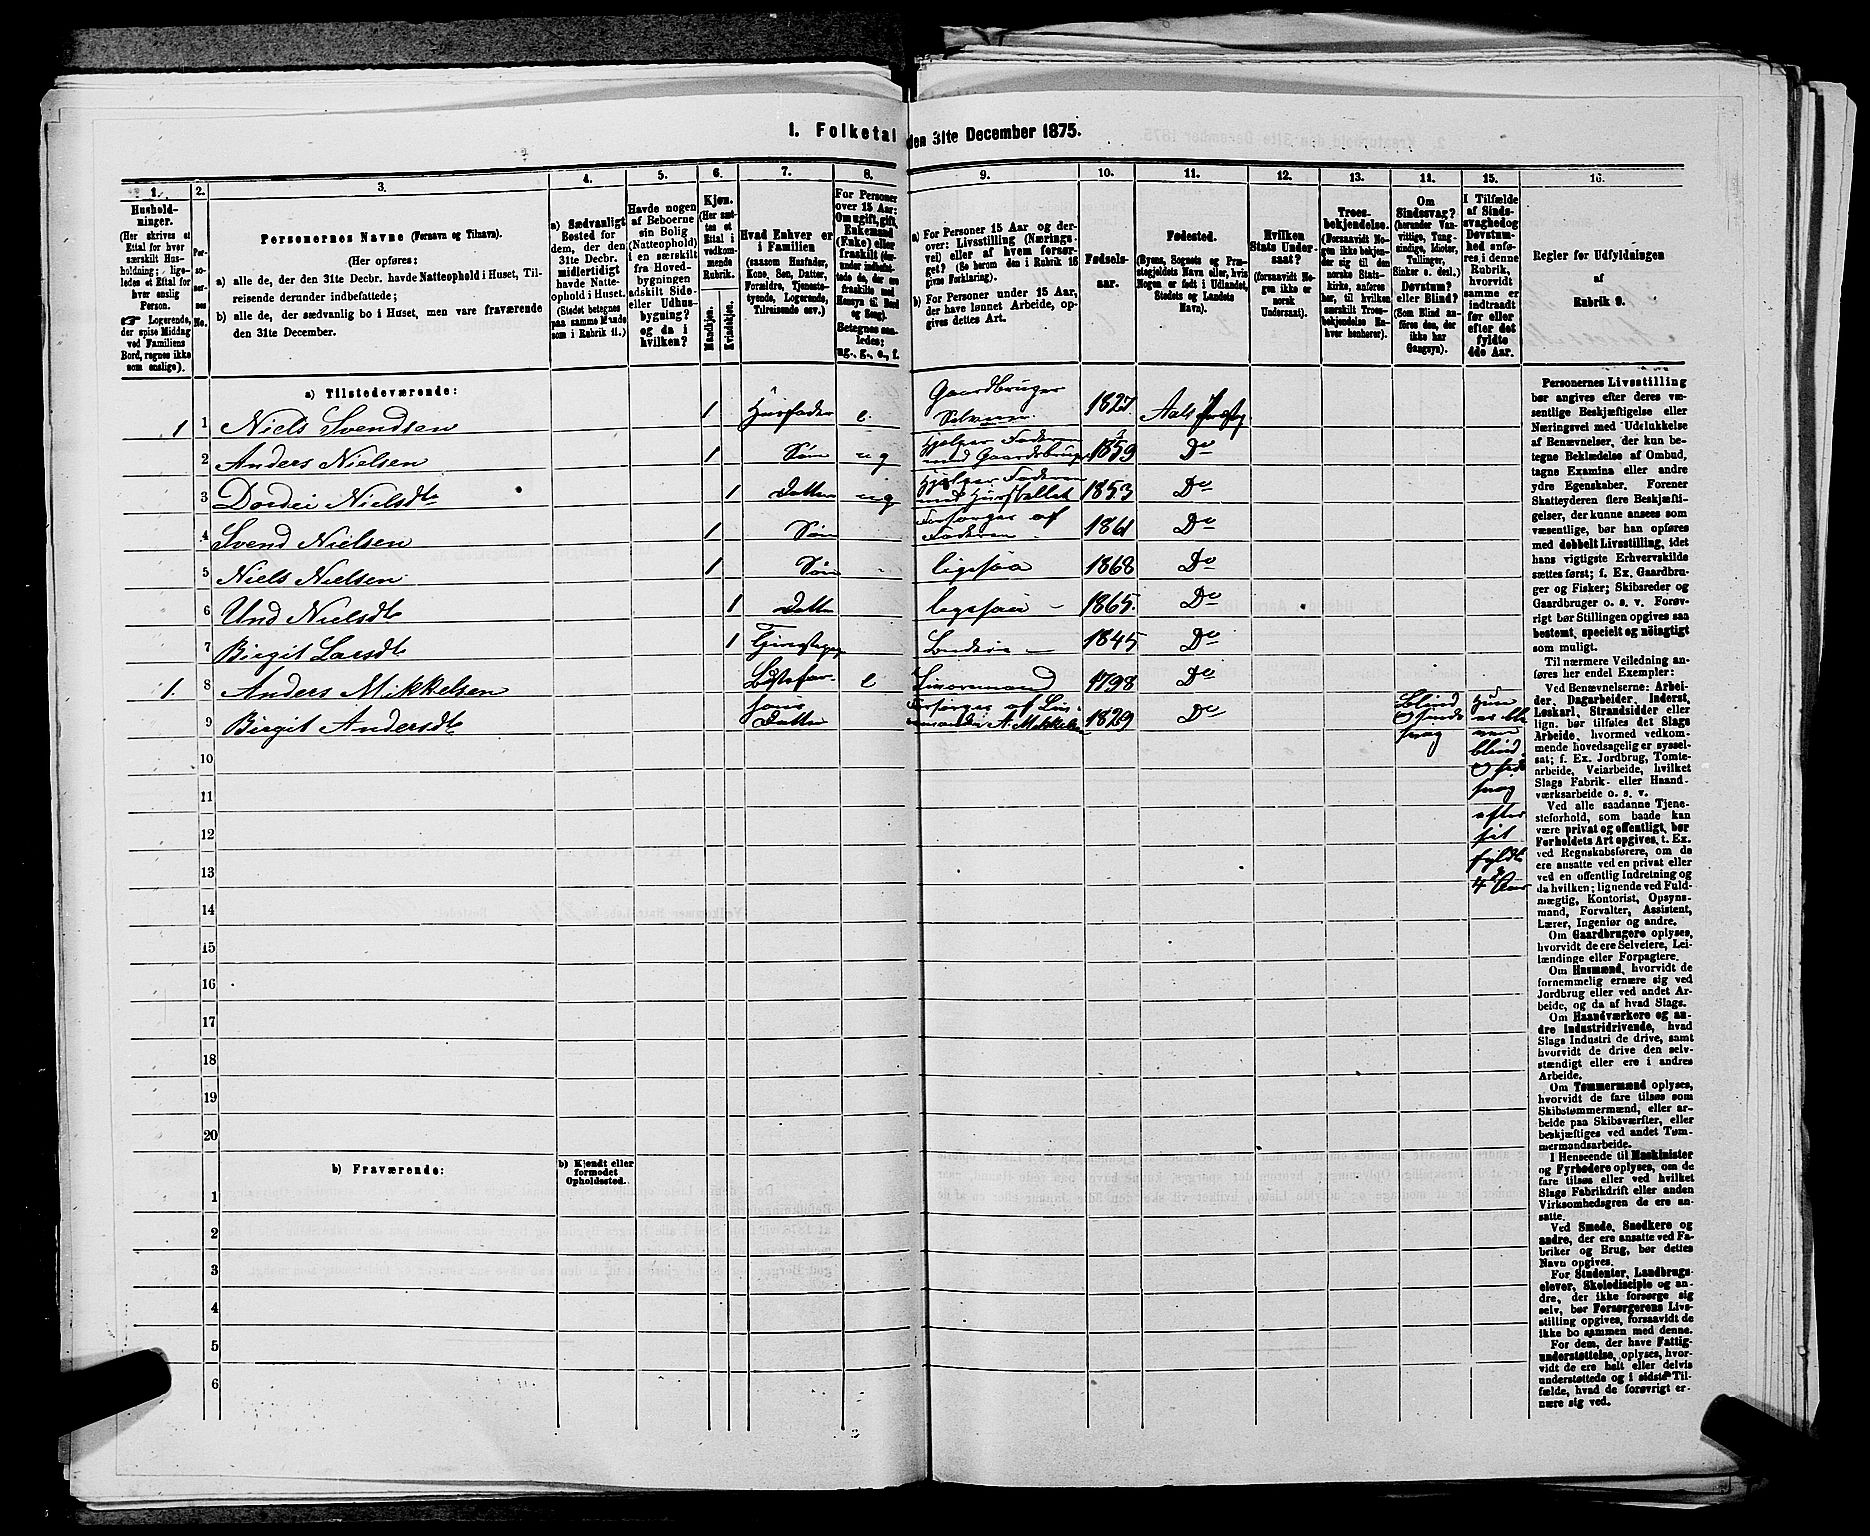 1. Folketal den 31te December 1875.
1.
2.
3.
4.
5.
6.
7.
8.
9.
10.
11.
12.
13.
14.
15.
16.
Husholdninger.
(Her skrives et
Ettal for hver
særskilt Husholdning;
ligeledes et Ettal for
hver enslig
Person.
☞ Logerende,
der spise Middag
ved Familiens
Bord, regnes ikke
som enslige).
Personernes No.
Personernes Navne (Fornavn og Tilnavn).
(Her opføres:
a) alle de, der den 31te Decbr. havde Natteophold i Huset, Tilreisende derunder indbefattede;
b) alle de, der sædvanlig bo i Huset, men vare fraværende
den 31te December.
a) Sædvanligt
Bosted for
dem, der den
31te Decbr.
midlertidigt
havde Natteophold i Huset.
(Stedet betegnes
paa samme Maade
som i Rubrik 11.)
Havde nogen
af Beboerne
sin Bolig
(Natteophold)
i en særskilt
fra Hovedbygningen
adskilt Side-
eller Udhusbygning?
og da i
hvilken?
Kjøn.
(Her sættes et
Ettal i
vedkommende
Rubrik.
Mandkjøn.
Kvindekjøn.
Hvad Enhver er
i Familien
(saasom Husfader,
Kone, Søn, Datter,
Forældre, Tjenestetyende, Logerende,
Tilreisende osv.)
For Personer
over 15 Aar:
Om ugift, gift,
Enkemand
(Enke) eller
fraskilt
Betegnes saaledes:
ug., g., e., f.
a) For Personer 15 Aar og derover: Livsstilling (Næringsvei) eller af hvem forsørget? (Se herom den i Rubrik 16
givne Forklaring).
b) For Personer under 15 Aar,
der have lønnet Arbeide, opgives dettes Art.
Fødselsaar.
Fødested.
(Byens, Sognets og Præstegjeldets Navn eller, hvis
Nogen er født i Udlandet,
Stedets og Landets
Navn).
Hvilken
Stats Undersaat?
(forsaavidt Nogen ikke er
norsk
Undersaat).
Troesbekjendelse.
(Forsaavidt Nogen ikke bekjender sig til den
norske Statskirke, anføres
her, til hvilken
særskilt Troesbekjendelse Enhver henhører).
Om
Sindssvag?
(herunder Vanvittige, Tungsindige, Idioter,
Tullinger,
Sinker o. desl.)
Døvstum?
eller Blind?
(Som Blind anføres den, der
ikke har
Gangsyn).
I Tilfælde
af Sindssvaghed og
Døvstumhed anføres i denne
Rubrik,
hvorvidt
samme er
indtraadt
før eller
efter det
fyldte
4de Aar.
Regler for Udfyldningen
af
Rubrik 9.
a) Tilstedeværende:
1 1 Niels Svendsen 1 Husfader e. Gaardbruger Selveier 1827 Aals Præstg.
2 Anders Nielsen 1 Søn ug Hjelper Faderen med Gaardsbruget 1859 Do
3 Dordei Nielsdt 1 Datter ug Hjelper Faderen med Husstellet 1853 Do
4 Svend Nielsen 1 Søn Forsørges af Faderen 1861 Do
5 Niels Nielsen 1 Søn ligesaa 1868 Do
6 Und Nielsdt 1 Datter ligesaa 1865. Do
7 Birgit Larsdt 1 1845 Do
1. 8 Anders Mikkelsen e 1798 Do
9 Birgit Andersdt hans Datter Forsørges af A. Mikkelsen 1829 Do Blind Hun
er
blind
efter
sit
fyldte
4de Aar
10
11
12
13
14
15
16
17
18
19
20
b) Fraværende:
b) Kjendt eller
formodet
Opholdssted.
1
2
3
4
5
6
Personernes Livsstilling
bør angives efter deres væsentlige Beskjæftigelse eller
Næringsvei med Udelukkelse
af Benævnelser, der kun betegne Beklædelse af Ombud,
tagne Examina eller andre
ydre Egenskaber. Forener
Skatteyderen flere Beskjæftigelser, der kunne ansees som
væsentlige, bør han opføres
med dobbelt Livsstilling, idet
hans vigtigste Erhvervskilde
sættes først; f. Ex. Gaardbruger og Fisker; Skibsreder og
Gaardbruger o. s. v. Forøvrigt bør Stillingen opgives saa
bestemt, specielt og nøiagtigt
som muligt.
Til nærmere Veiledning anføres her endel Exempler:
Ved Benævnelserne: Arbeider, Dagarbeider, Inderst,
Løskarl, Strandsidder eller
lign. bør tilføies det Slags
Arbeide, hvormed vedkommende hovedsagelig er sysselsat; f. Ex. Jordbrug, Tomtearbeide, Veiarbeide, hvilket
Slags Fabrik- eller Haandværksarbeide o. s. v.
Ved alle saadanne Tjenesteforhold, som baade kan
være privat og offentligt, bør
Forholdets Art opgives, t. Ex.
ved Regnskabsførere, om de
ere ansatte ved en privat eller
ved en offentlig Indretning og
da hvilken; lignende ved Fuldmægtig, Kontorist, Opsynsmand, Forvalter, Assistent,
Lærer, Ingeniør og andre.
Om Gaardbrugere oplyses,
hvorvidt de ere Selveiere, Leilændinge eller Forpagtere.
Om Husmænd, hvorvidt de
fornemmelig ernære sig ved
Jordbrug eller ved andet Arbeide, og da af hvad Slags.
Om Haandværkere og andre Industridrivende, hvad
Slags Industri de drive, samt
hvorvidt de drive den selvstændigt eller ere i andres
Arbeide.
Om Tømmermænd oplyses,
hvorvidt de fare tilsøs som
Skibstømmermænd, eller arbeide paa Skibsværfter, eller
beskjæftiges ved andet Tømmermandsarbeide.
I Henseende til Maskinister
og Fyrbødere oplyses, om de
fare tilsøs eller ved hvilket
Slags Fabrikdrift eller anden
Virksomhedsgren de ere ansatte.
Ved Smede, Snedkere og
andre, der ere ansatte ved Fabriker og Brug, bør dettes
Navn opgives.
For Studenter, Landbrugselever, Skoledisciple og andre, der ikke forsørge sig
selv, bør Forsørgerens Livsstilling opgives, forsaavidt de
ikke bo sammen med denne.
For dem, der have Fattigunderstøttelse, oplyses, hvorvidt de ere helt eller delvis
understøttede og i sidste Tilfælde, hvad de forøvrigt ernære sig ved.